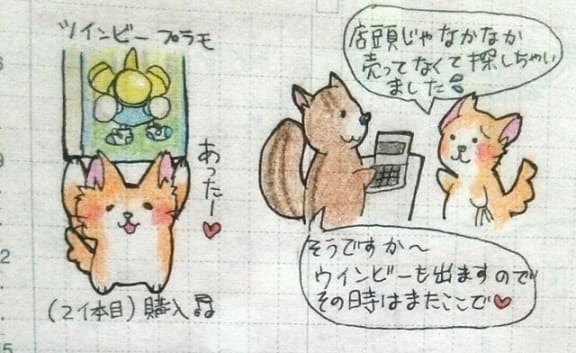 ツインビー プラモ
あったー♥
(2体目)購入♫
店頭じゃなかなか
売ってなくて探しちゃい
ました
そうですか〜
ウインビーも出ますので
その時はまたここで♥